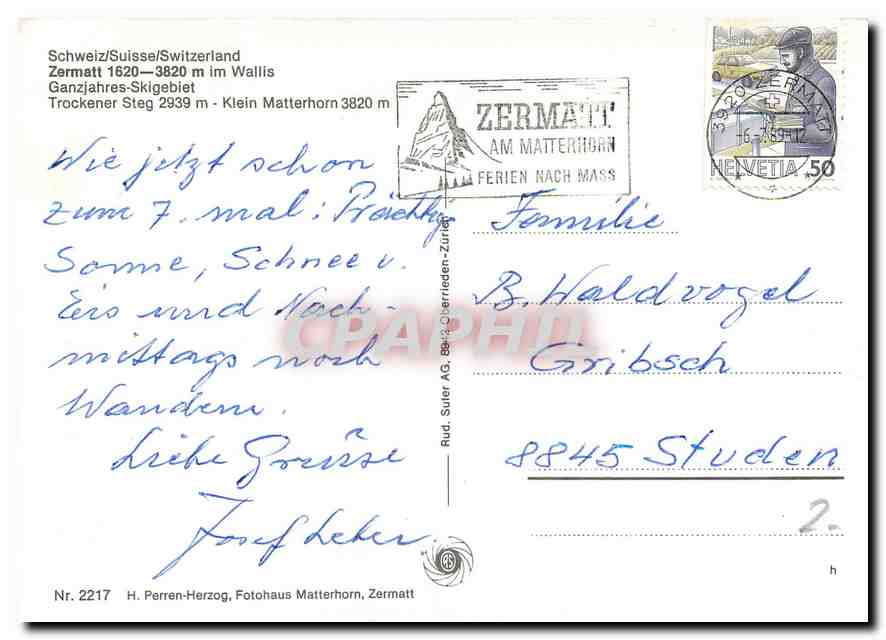 Schweiz/Suisse/Switzerland
Zermatt 1620—3820 m im Wallis
Ganzjahres-Skigebiet
Trockener Steg 2939 m - Klein Matterhorn 3820 m
ZERMATT
AM MATTERHORN
FERIEN NACH MASS
3920 ZERMATT
-6.-7.89-12
HELVETIA 50
Wie jetzt schon
zum 7. mal: Prächtige
Sonne, Schnee u.
Eis und Nach-
mittags noch
Wandern.
Liebe Grüsse
Josef
Familie
B. Waldvogel
Gribsch
8845 Studen
2.
Rud. Suter AG, 8942 Oberrieden-Zürich
CPAPHIL
h
Nr. 2217 H. Perren-Herzog, Fotohaus Matterhorn, Zermatt